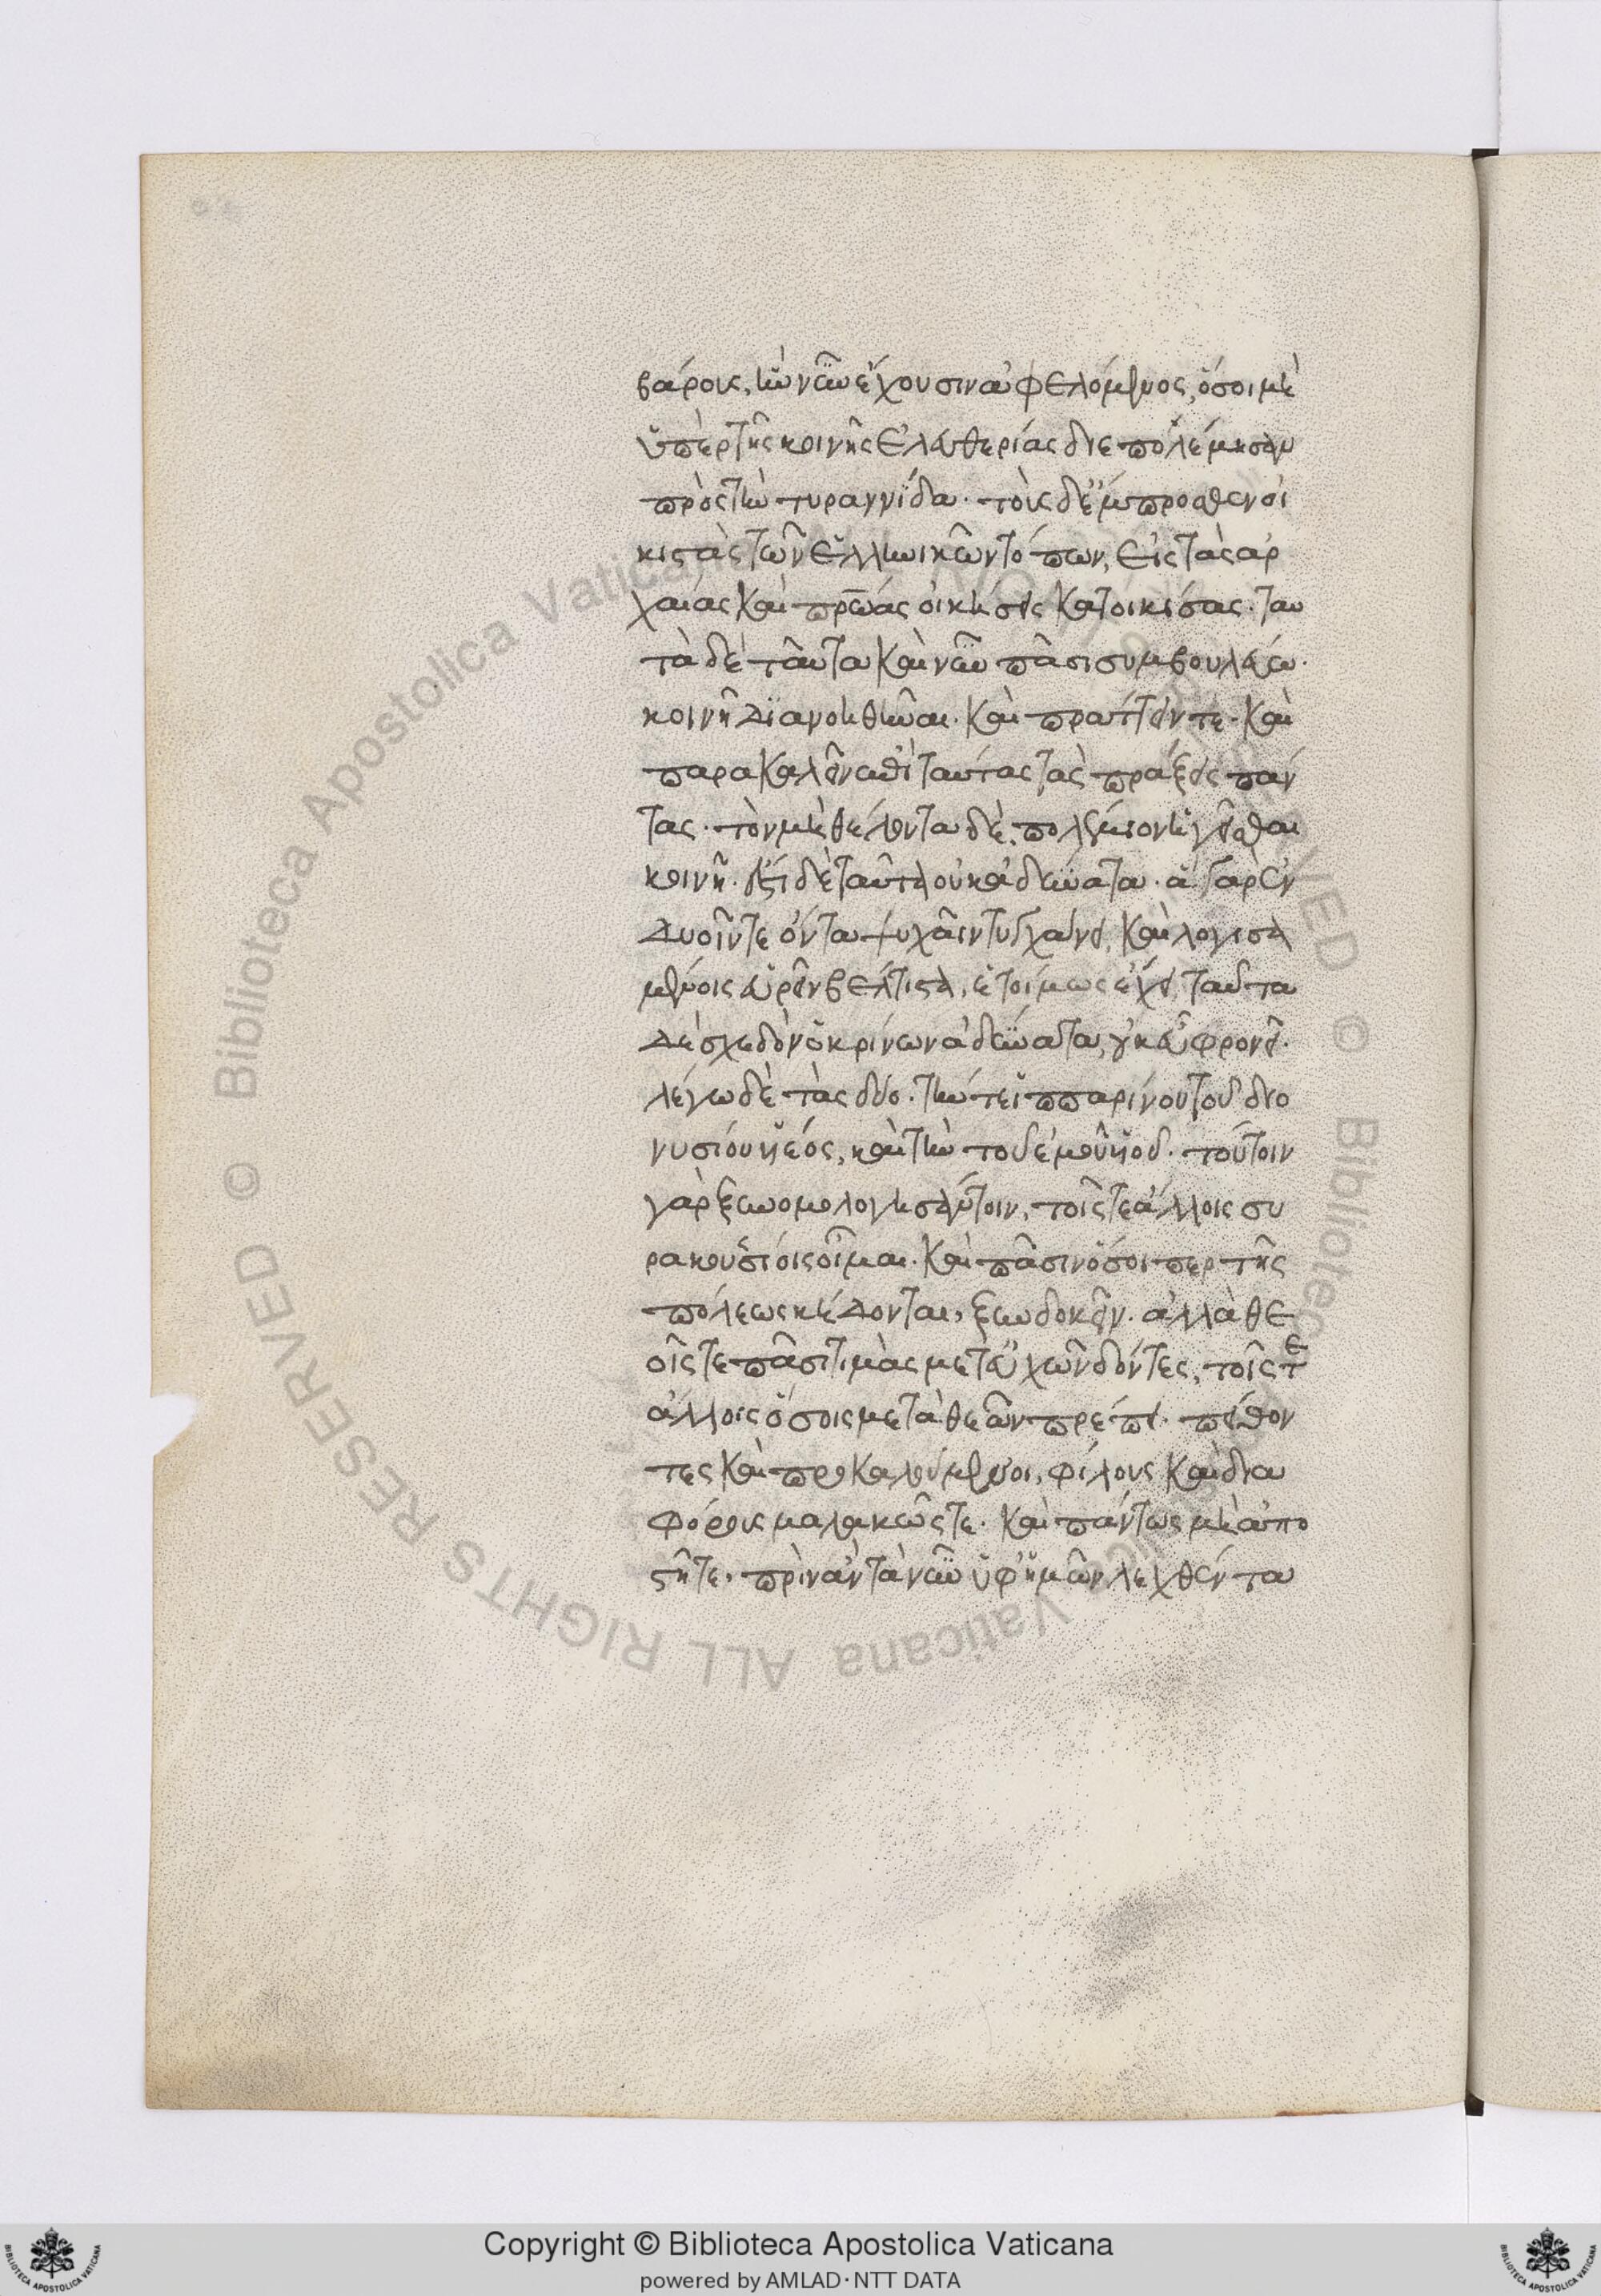 βάροις, ἣν νῦν ἔχουσιν ἀφελόμενος, ὅσοι μὴ
ὑπὲρ τῆς κοινῆς ἐλευθερίας διεπολέμησαν
πρὸς τὴν τυραννίδα· τοὺς δ' ἔμπροσθεν οἰ
κιστὰς τῶν ἑλληνικῶν τόπων, εἰς τὰς ἀρ
χαίας καὶ πατρῴας οἰκήσεις κατοικίσας· ταυ
τὰ δὲ ταῦτα καὶ νῦν πᾶσι συμβουλεύω·
κοινῆ διανοηθῆναι· καὶ πράττειν τε· καὶ
παρακαλεῖν ἐπὶ ταύτας τὰς πράξεις πάν
τας· τὸν μὴ θέλοντα δὲ, πολέμιον ἡγεῖσθαι
κοινῆ· ἔστι δὲ ταῦτα οὐκ ἀδύνατα· ἃ γὰρ ἐν
δυοῖν τε ὄντα ψυχαῖν τυγχάνει, καὶ λογισα
μένοις εὑρεῖν βέλτιστα, ἑτοίμως ἔχει, ταῦτα
δὲ σχεδὸν ὁ κρίνων ἀδύνατα, οὐκ εὖ φρονεῖ·
λέγω δὲ τὰς δύο· τήν τε ἱππαρίνου τοῦ διο
νυσίου ὑέος, καὶ τὴν τοῦ ἐμοῦ ὑοῦ· τούτοιν
γὰρ ξυνομολογησάντοιν, τοῖς τε ἄλλοις συ
ρακουσίοις οἶμαι· καὶ πᾶσιν ὅσοιπερ τῆς
πόλεως κήδονται, ξυνδοκεῖν· ἀλλὰ θε
οῖς τε πᾶσι τιμὰς μετ' εὐχῶν δόντες, τοῖς τε
ἄλλοις ὅσοις μετὰ θεῶν πρέπει· πείθον
τες καὶ προκαλούμενοι, φίλους καὶ δια
φόρους μαλακῶς τε· καὶ πάντως μὴ ἀπο
στῆτε, πρὶν ἂν τὰ νῦν ὑφ' ἡμῶν λεχθέντα
Copyright © Biblioteca Apostolica Vaticana
powered by AMLAD·NTT DATA